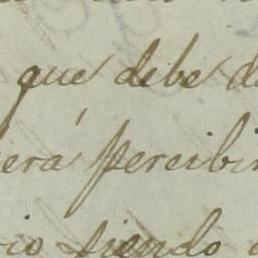 que debe d
erá percibir
io siendo